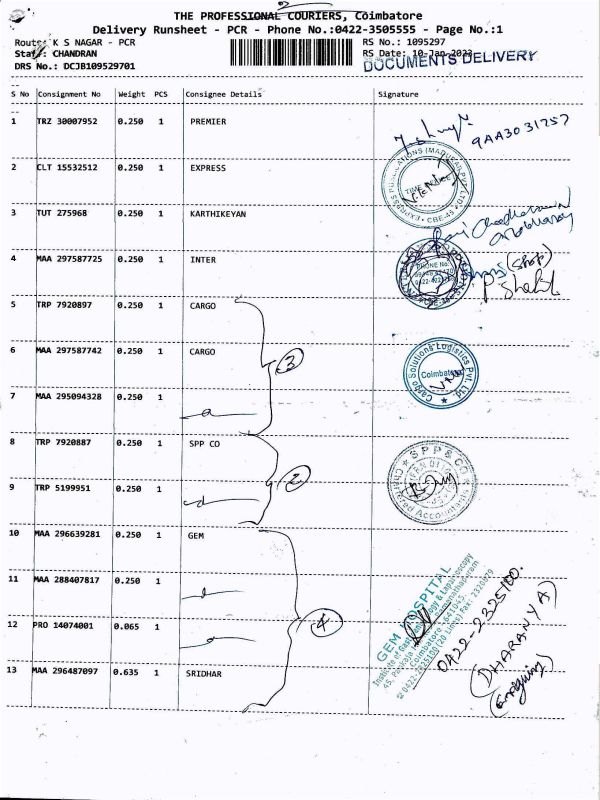 2
THE PROFESSIONAL COURIERS, Coimbatore
Delivery Runsheet - PCR - Phone No.:0422-3505555 - Page No.:1
Route: K S NAGAR - PCR RS No.: 1095297
Staff: CHANDRAN RS Date: 10-Jan-2023
DRS No.: DCJB109529701 DOCUMENTS DELIVERY
S No Consignment No Weight PCS Consignee Details Signature
1 TRZ 30007952 0.250 1 PREMIER
9AA3031757
2 CLT 15532512 0.250 1 EXPRESS
EXPRESS PUBLICATIONS (MADURAI) PVT. LTD. CBE-45
3 TUT 275968 0.250 1 KARTHIKEYAN
4 MAA 297587725 0.250 1 INTER
PHONE No:
(Shop)
5 TRP 7920897 0.250 1 CARGO
6 MAA 297587742 0.250 1 CARGO
3
Cargo Solutions Logistics Pvt. Ltd.
Coimbatore
7 MAA 295094328 0.250 1
8 TRP 7920887 0.250 1 SPP CO
SPP & CO
Chartered Accountants
9 TRP 5199951 0.250 1
2
10 MAA 296639281 0.250 1 GEM
11 MAA 288407817 0.250 1
GEM HOSPITAL
0422-2325100.
12 PRO 14074001 0.065 1
4
(DHARANYA)
13 MAA 296487097 0.635 1 SRIDHAR